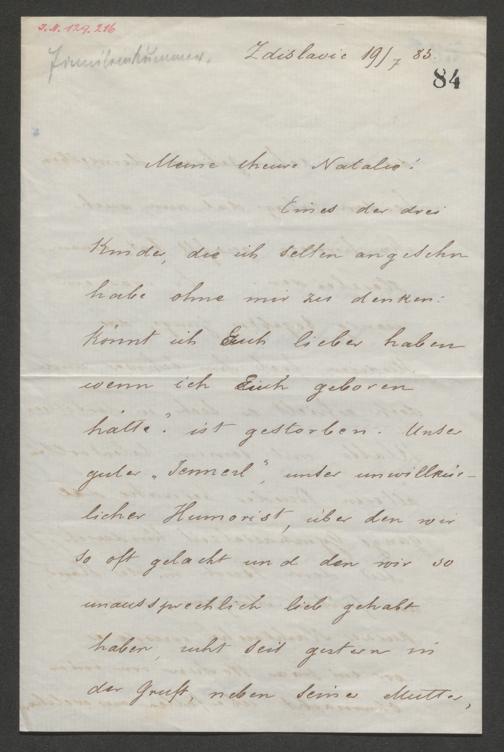 I.N. 129.216
Familienkummer.
Zdislavic 19/7 83.
84
Meine theure Natalie!
Eines der drei
Kinder, die ich selten angesehn
habe ohne mir zu denken:
könnt ich Euch lieber haben
wenn ich Euch geboren
hätte? ist gestorben. Unser
guter „Tennerl", unser unwillkür-
licher Humorist, über den wir
so oft gelacht und den wir so
unaussprechlich lieb gehabt
haben, ruht seit gestern in
der Gruft, neben seiner Mutter,